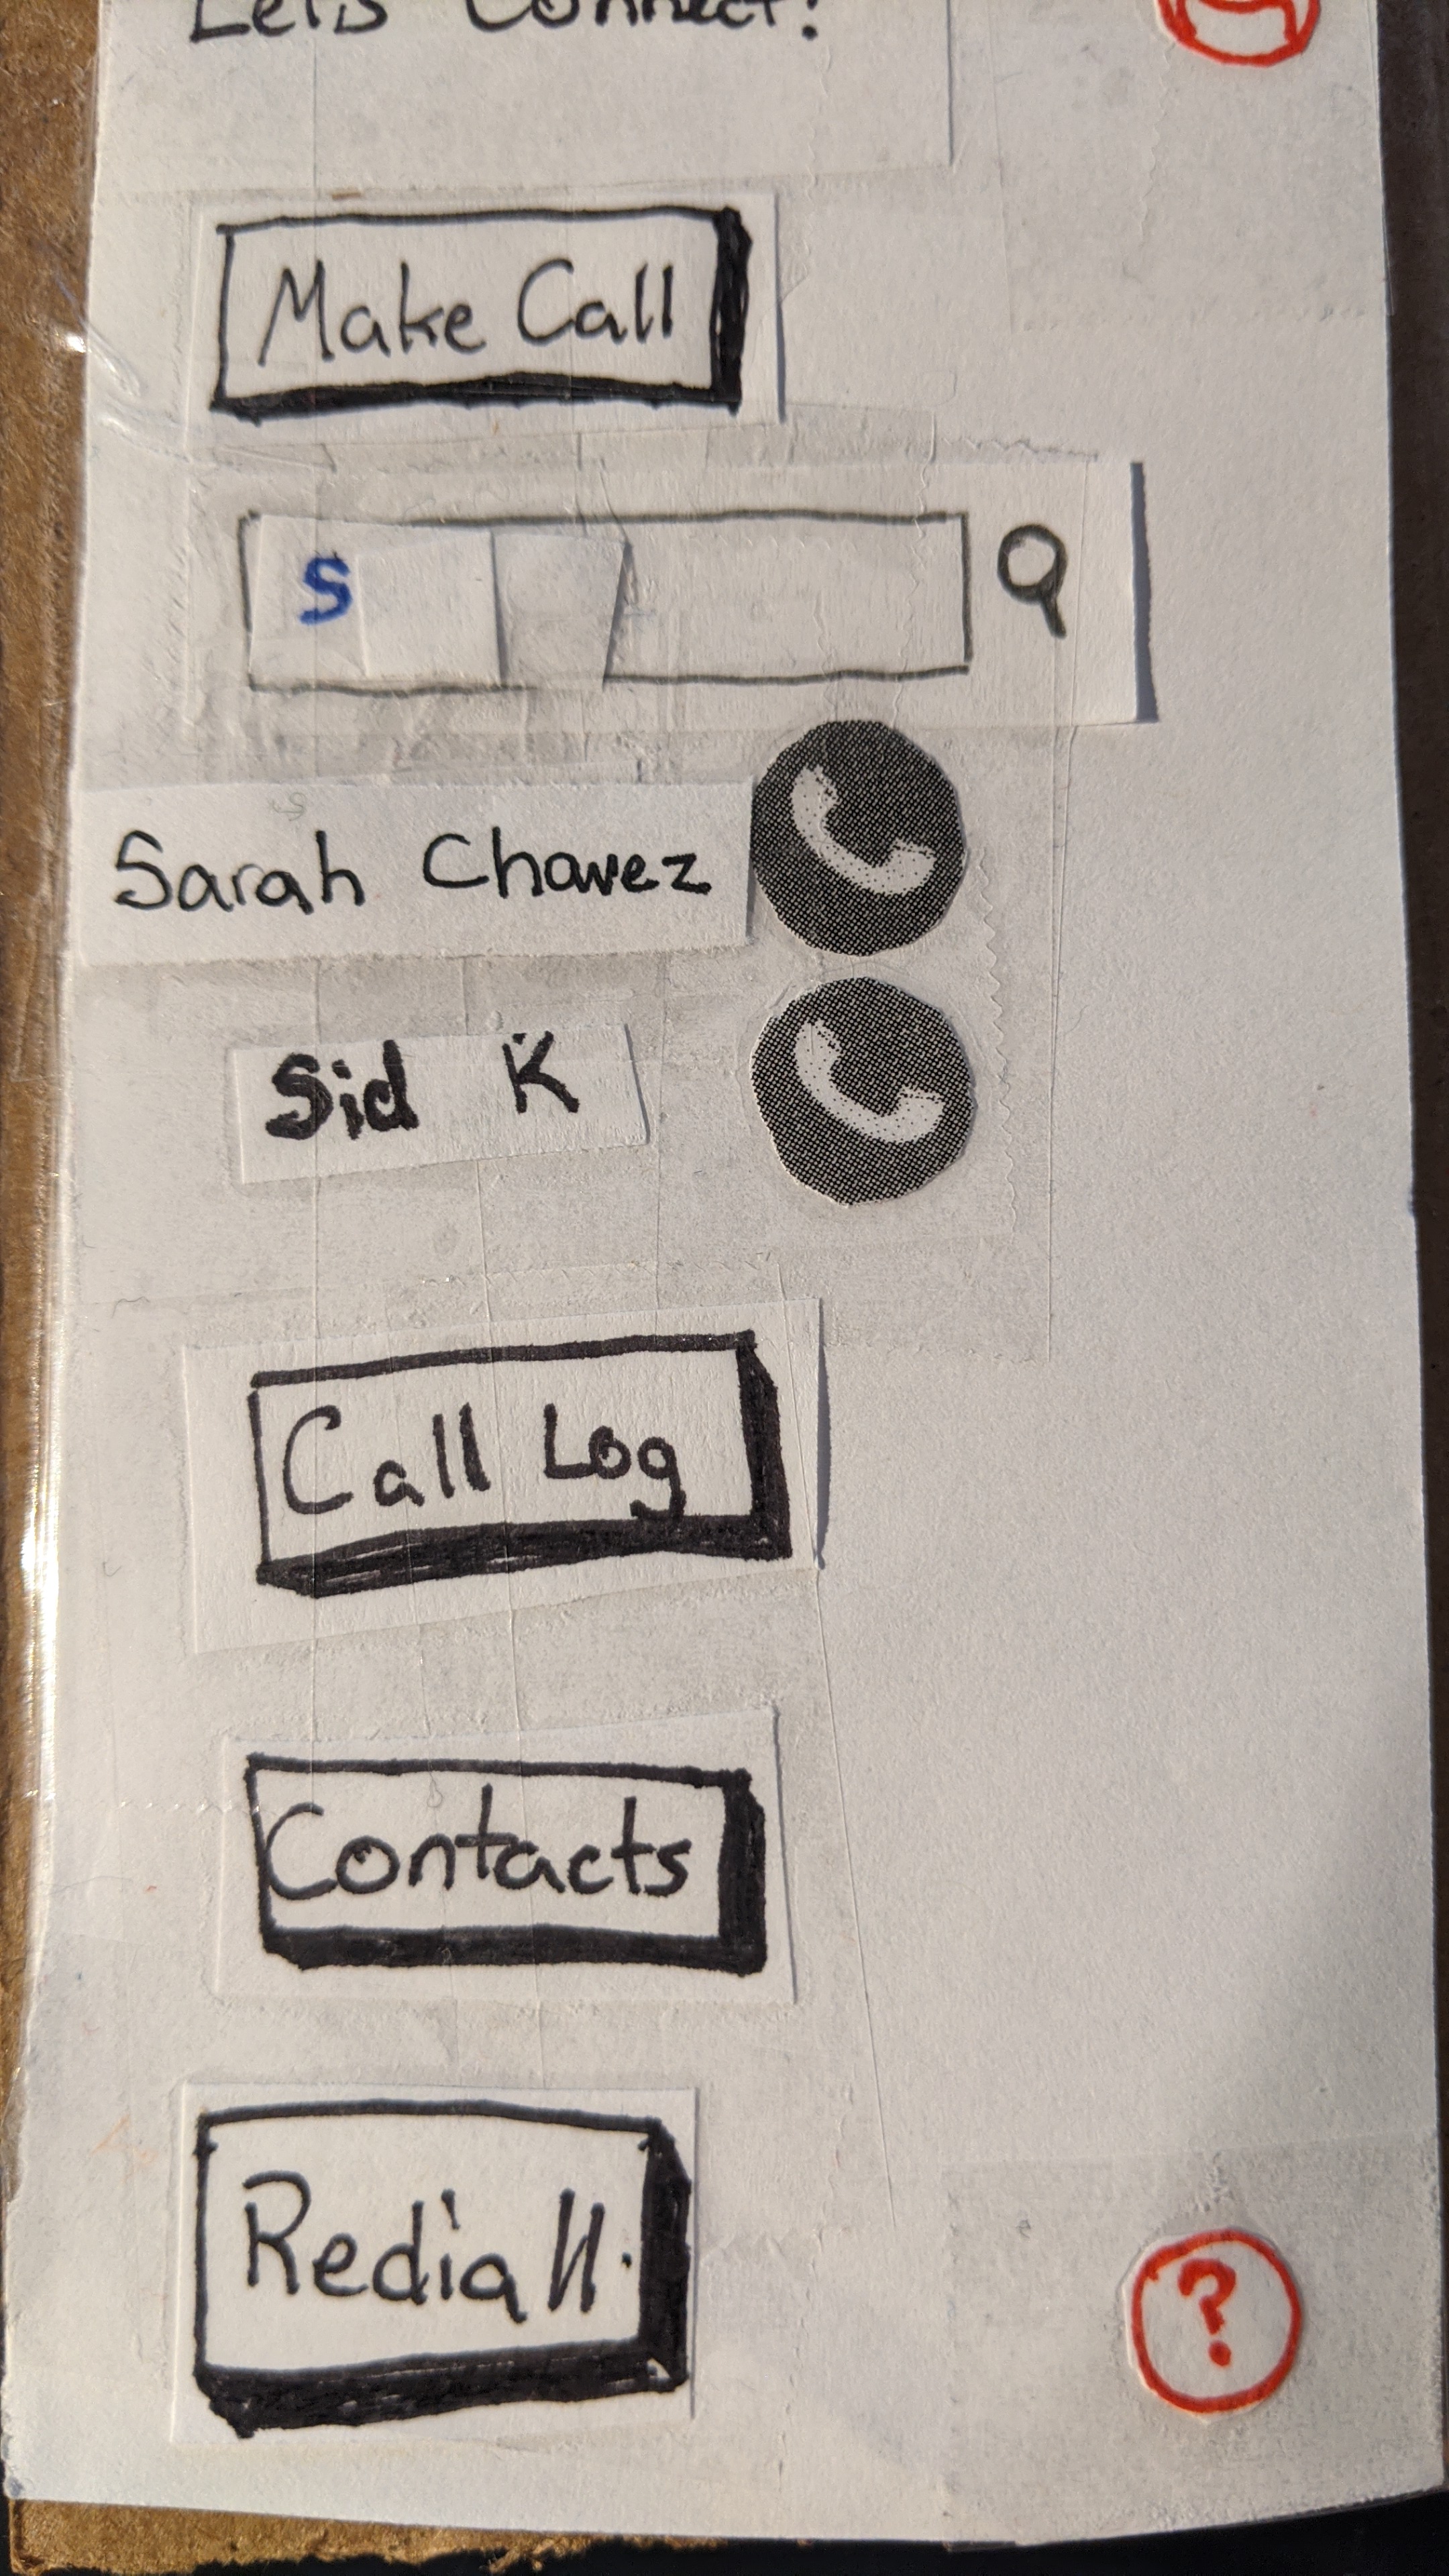 Let's Connect!
Make Call
S
Sarah Chavez
Sid K
Call Log
Contacts
Rediall.
?